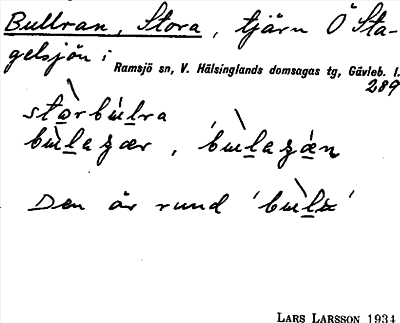 Bullran, Stora, tjärn Ö Sta-
gelsjön i
Ramsjö sn, V. Hälsinglands domsagas tg, Gävleb. l.
289
storbulra
bulagær, 'bulagæn
Den är rund 'bulu'
LARS LARSSON 1934